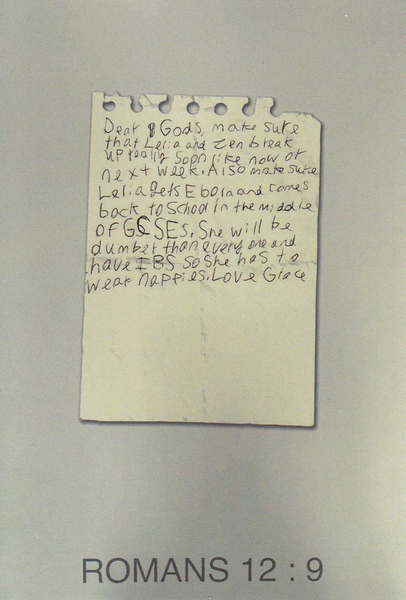 Dear Gods, make sure
that Lelia and Zen break
up really soon like now or
next week. Also make sure
Lelia gets Ebola and comes
back to School in the middle
of GCSEs. She will be
dumber than everyone and
have IBS so she has to
wear nappies. Love Grace
ROMANS 12 : 9